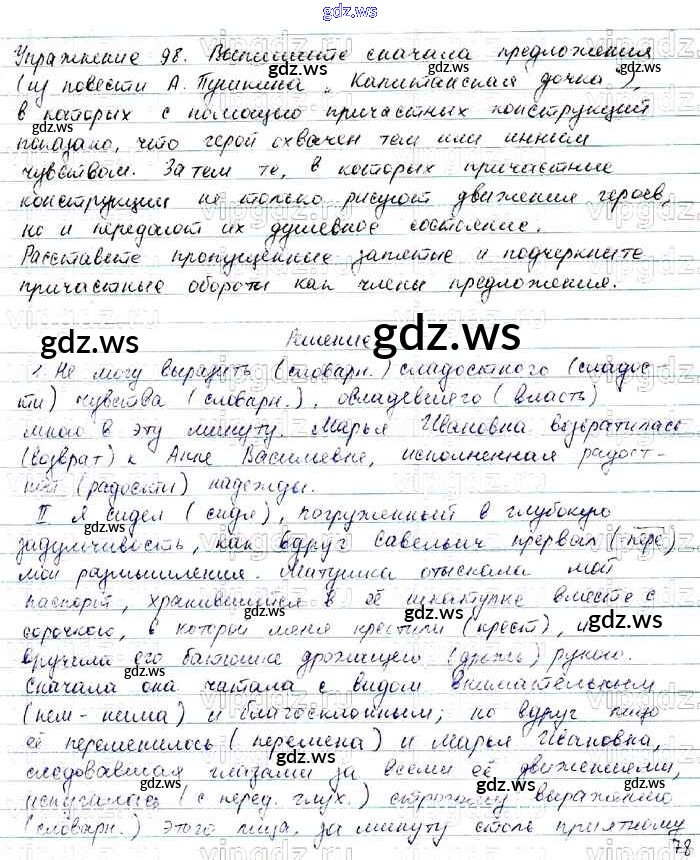 gdz.ws
Упражнение 98. Выпишите сначала предложения
(из повести А. Пушкина „Капитанская дочка"),
в которых с помощью причастных конструкций
показано, что герой охвачен тем или иным
чувством. Затем те, в которых причастные
конструкции не только рисуют движения героев,
но и передают их душевное состояние.
Расставьте пропущенные запятые и подчеркните
причастные обороты как члены предложения.
Решение
1. Не могу выразить (словарн.) сладостного (сладос-
ти) чувства (словарн.), овладевшего (власть)
мною в эту минуту. Марья Ивановна возвратилась
(возврат) к Анне Васильевне, исполненная радост-
ной (радости) надежды.
II Я сидел (сидя), погруженный в глубокую
задумчивость, как вдруг Савельич прервал (пере)
мои размышления. Матушка отыскала мой
паспорт, хранившийся в её шкатулке вместе с
сорочкою, в которой меня крестили (крест), и
вручила его батюшке дрожащею (дрожь) рукою.
Сначала она читала с видом внимательным
(нем-нима) и благосклонным; но вдруг лицо
её переменилось (перемена) и Марья Ивановна,
следовавшая глазами за всеми её движениями,
испугалась (с перед. глух.) строгому выражению
(словарн.) этого лица, за минуту столь приятному
78